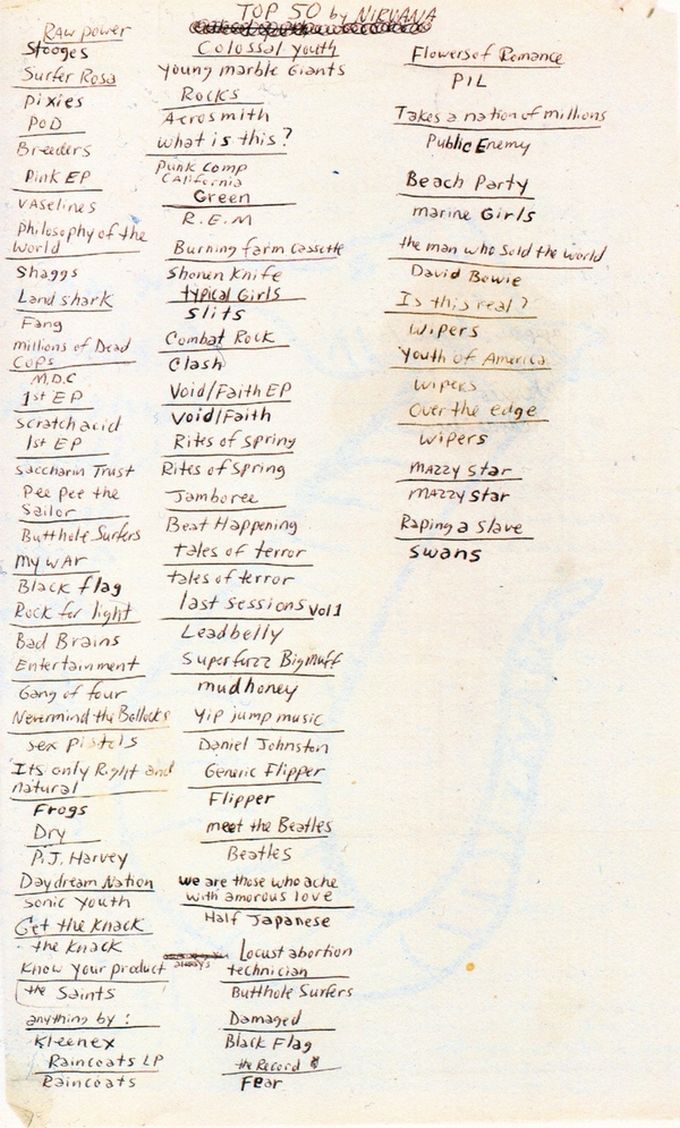 TOP 50 by NIRVANA
Raw power
Stooges
Surfer Rosa
Pixies
POD
Breeders
Pink EP
Vaselines
Philosophy of the
World
Shaggs
Land shark
Fang
millions of Dead
Cops
M.D.C
1st EP
Scratch acid
1st EP
Saccharin Trust
Pee Pee the
Sailor
Butthole Surfers
My war
Black flag
Rock for light
Bad Brains
Entertainment
Gang of four
Nevermind the Bollocks
Sex Pistols
Its only Right and
natural
Frogs
Dry
P.J. Harvey
Daydream Nation
Sonic Youth
Get the Knack
the Knack
Know Your product
the Saints
anything by:
Kleenex
Raincoats LP
Raincoats
Colossal Youth
Young marble Giants
Rocks
Aerosmith
What is this?
Punk Comp
California
Green
R.E.M
Burning farm cassette
Shonen Knife
Typical Girls
Slits
Combat Rock
Clash
Void/Faith EP
Void/Faith
Rites of Spring
Rites of Spring
Jamboree
Beat Happening
tales of terror
tales of terror
last sessions Vol 1
Leadbelly
Superfuzz Bigmuff
mudhoney
Yip jump music
Daniel Johnston
Generic Flipper
Flipper
meet the Beatles
Beatles
we are those who ache
with amorous love
Half Japanese
always
Locust abortion
technician
Butthole Surfers
Damaged
Black Flag
the Record
Fear
Flowers of Romance
PIL
Takes a nation of millions
Public Enemy
Beach Party
marine Girls
the man who sold the world
David Bowie
Is this real?
Wipers
Youth of America
Wipers
Over the edge
Wipers
Mazzy Star
Mazzy Star
Raping a slave
Swans